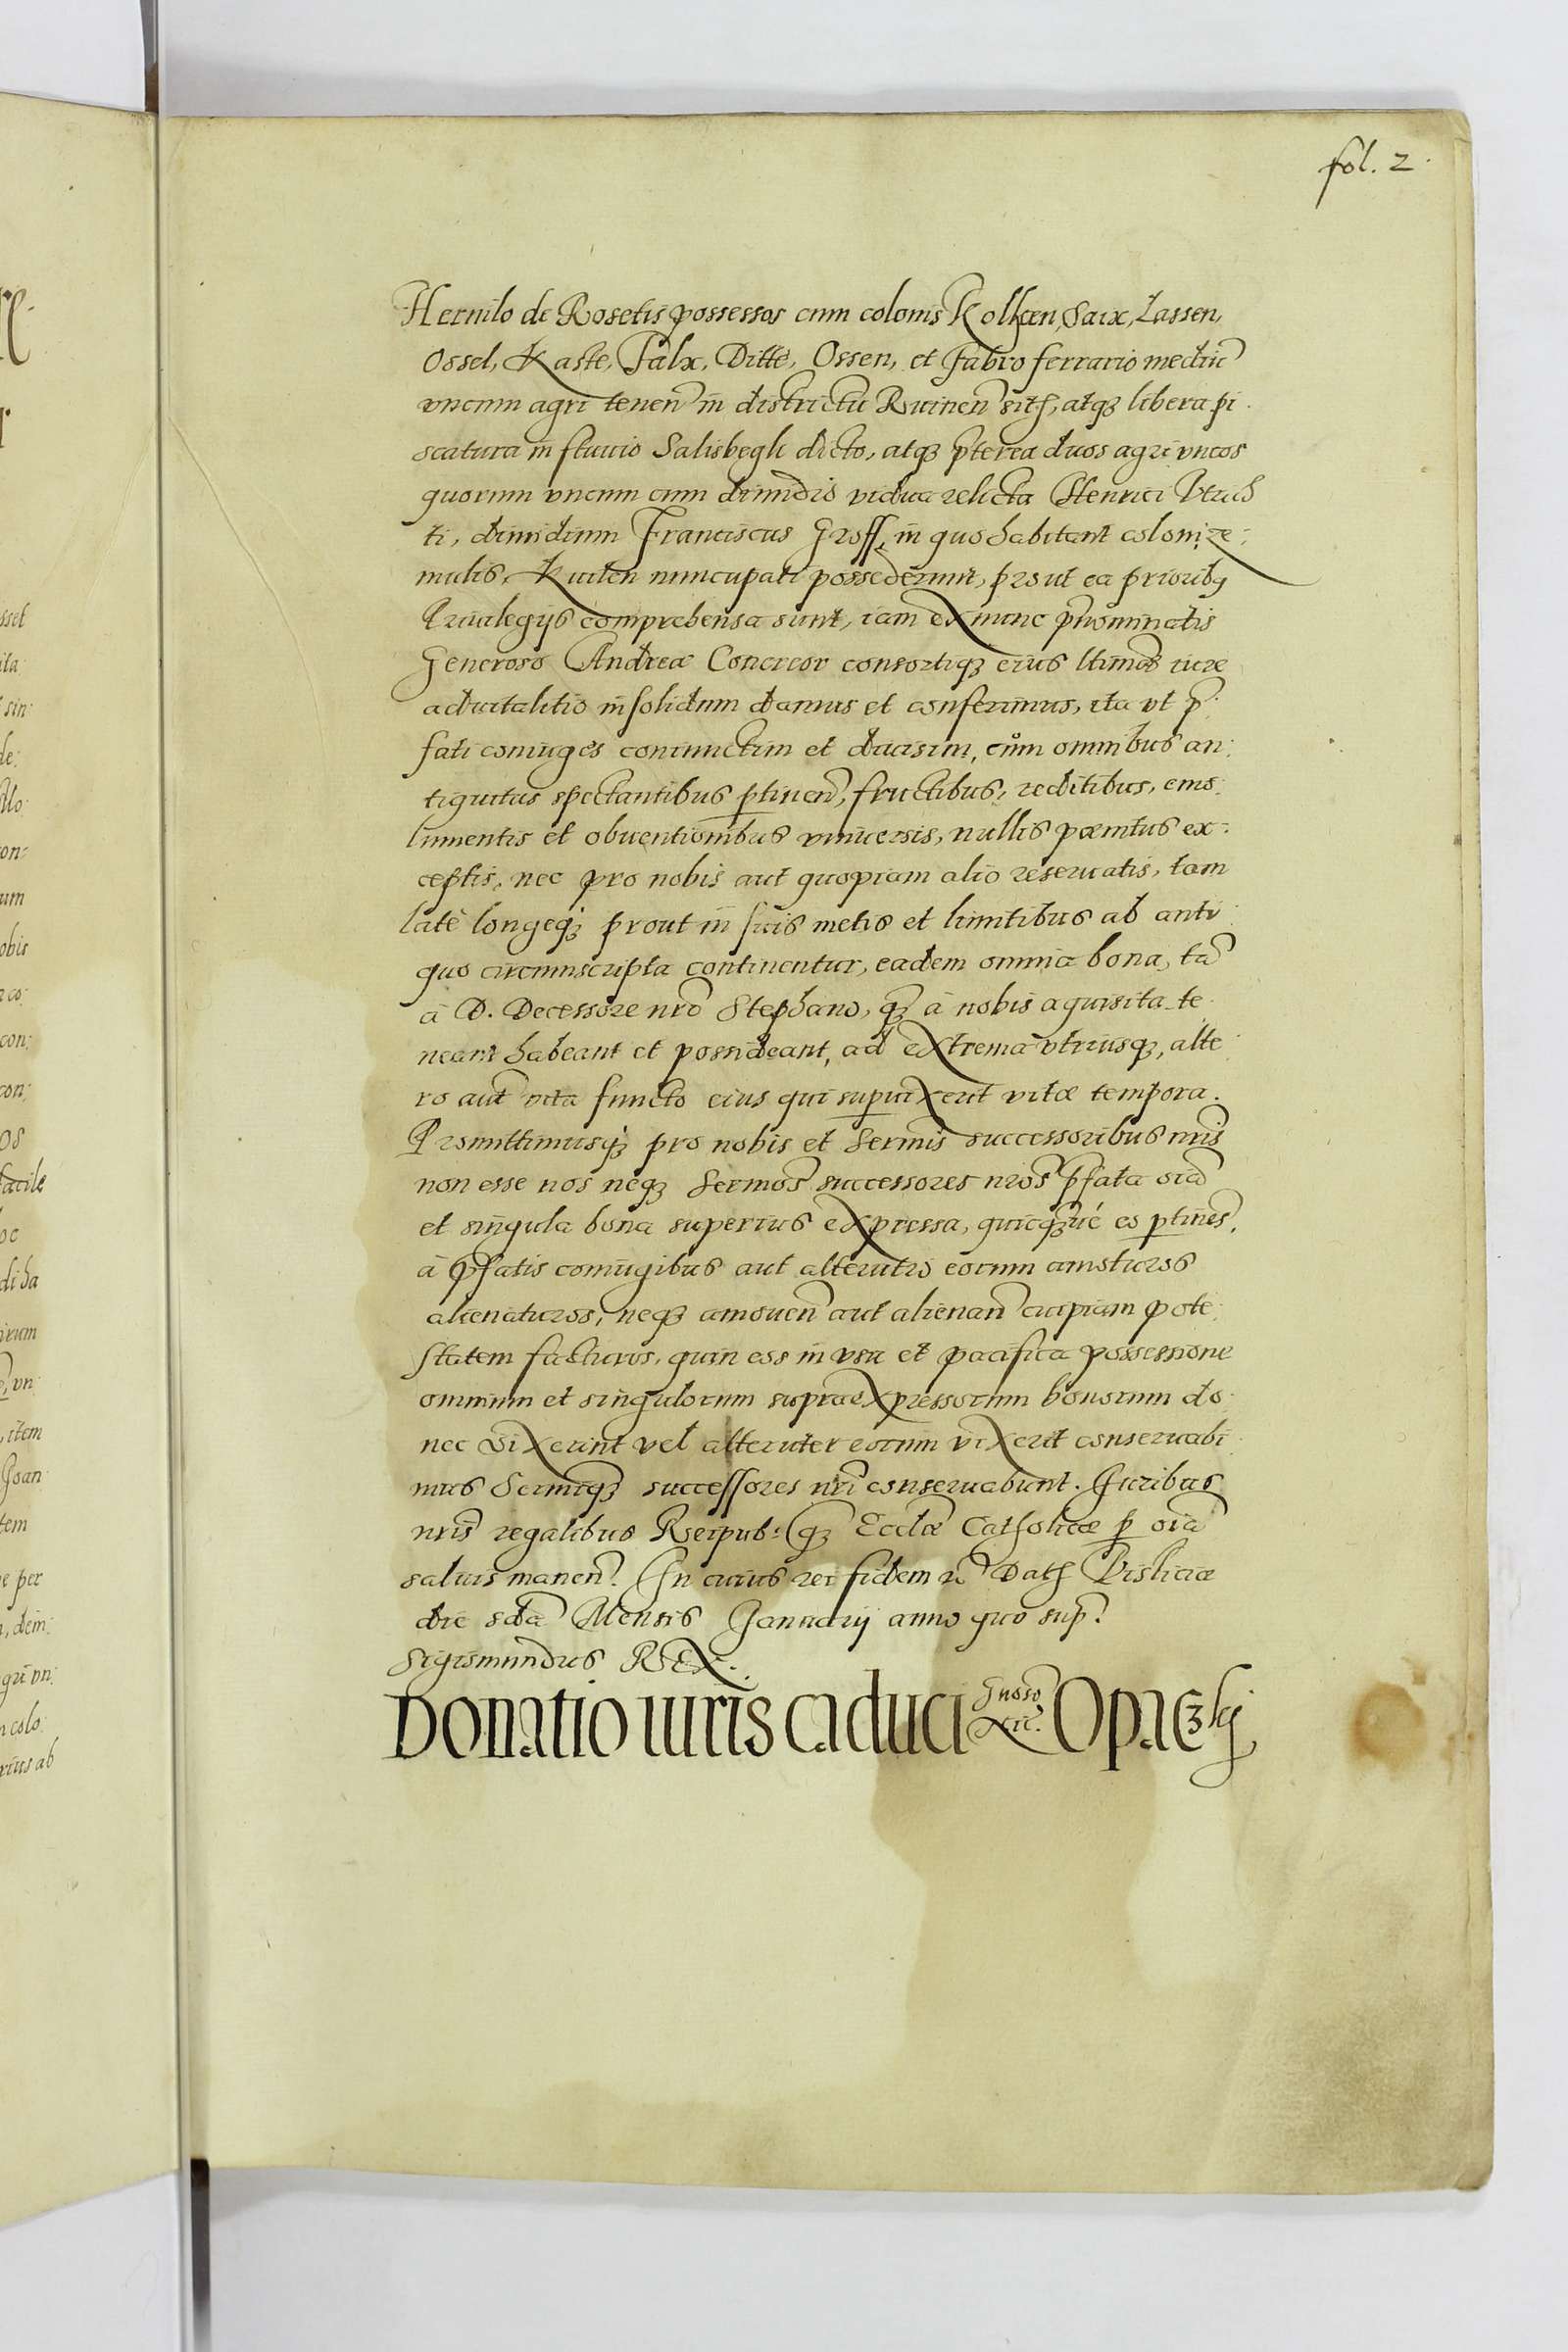 fol. 2.
Hernilo de Rosetis possessos cum colonis Kolken, Saix, Lassen,
Ossel, Kaste, Talx, Ditte, Ossen, et Fabro ferrario mediũ
vncum agri tenen̄ in districtu Ruinen̄ sitȝ, atqȝ libera pi
scatura in fluuio Salisbegk dicto, atqȝ p̄terea duos agri vncos
quorum vncum cum dimidio vidua relicta Henrici Vtrich
ti, dimidium Franciscus Gross, in quo habitant coloni, re:
mulis, Kuiten nuncupati possederunt, prout ea prioribꝰ
Priuilegijs comprehensa sunt, iam ex nunc p̄nominatis
Generoso Andreæ Concreor consortiqȝ eius l̄timæ iure
aduitalitio in solidum damus et conferimus, ita vt p̄:
fati coniuges coniunctim et diuisim, cům omnibus an:
tiquitus spectantibus ꝑtinen̄, fructibus, reditibus, emo:
lumentis et obuentionibus vniuersis, nullis pœnitus ex:
ceptis, nec pro nobis aut quopiam alio reseruatis, tam
latè longeqȝ prout in suis metis et limitibus ab anti
quo circumscripta continentur, eadem omnia bona, tā
à D. Decessore nr̄o Stephano, qȝ̄ à nobis aquisita te
neant habeant et possideant, ad extrema vtriusqȝ, alte
ro aut̄ vita functo eius qui supuixerit vitæ tempora.
Promittimusqȝ pro nobis et Serm̄is successoribus nr̄is
non esse nos neqȝ Serm̄os successores nr̄os p̄fata oīa
et singula bona superius expressa, quicqȝué eo ꝑtines̄.
à p̄fatis coniugibus aut alterutro eorum amoturos
alienaturos, neqȝ amouen̄ aut alienan̄ cuipiam pote:
statem facturos, quin eos in vsu et pacifica possessione
omnium et singulorum supraexpressorum bonorum do
nec vixerint vel alteruter eorum vixerit conseruabi
mus Serm̄iqȝ successores nr̄i conseruabunt. Iuribus
nr̄is regalibus Reipub: qȝ Eccl̄æ Catholicæ ꝑ oīa
saluis manen̄. In cuius rei fidem &c̄ Datȝ Visliciæ
die sdā Mensis Januarij anno quo sup̄.
Sigismundus REX.
Donatio iuris caduci Gnoso Xrē. Opaczkj